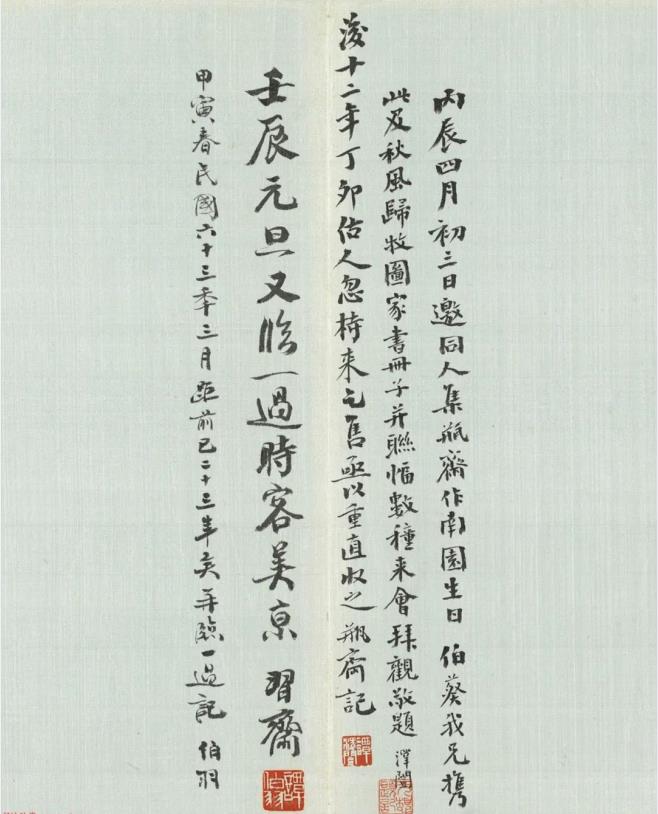 丙辰四月初三日邀同人集瓶齋作南園生日伯葵我兄攜
此及秋風歸牧圖家書冊子并聯幅數種来會拜觀敬題 澤闓
後十二年丁卯估人忽持来乞售亟以重直收之瓶齋記
壬辰元旦又臨一過時客美京 習齋
甲寅春民國六十三年三月距前已二十三年矣再臨一過記 伯羽